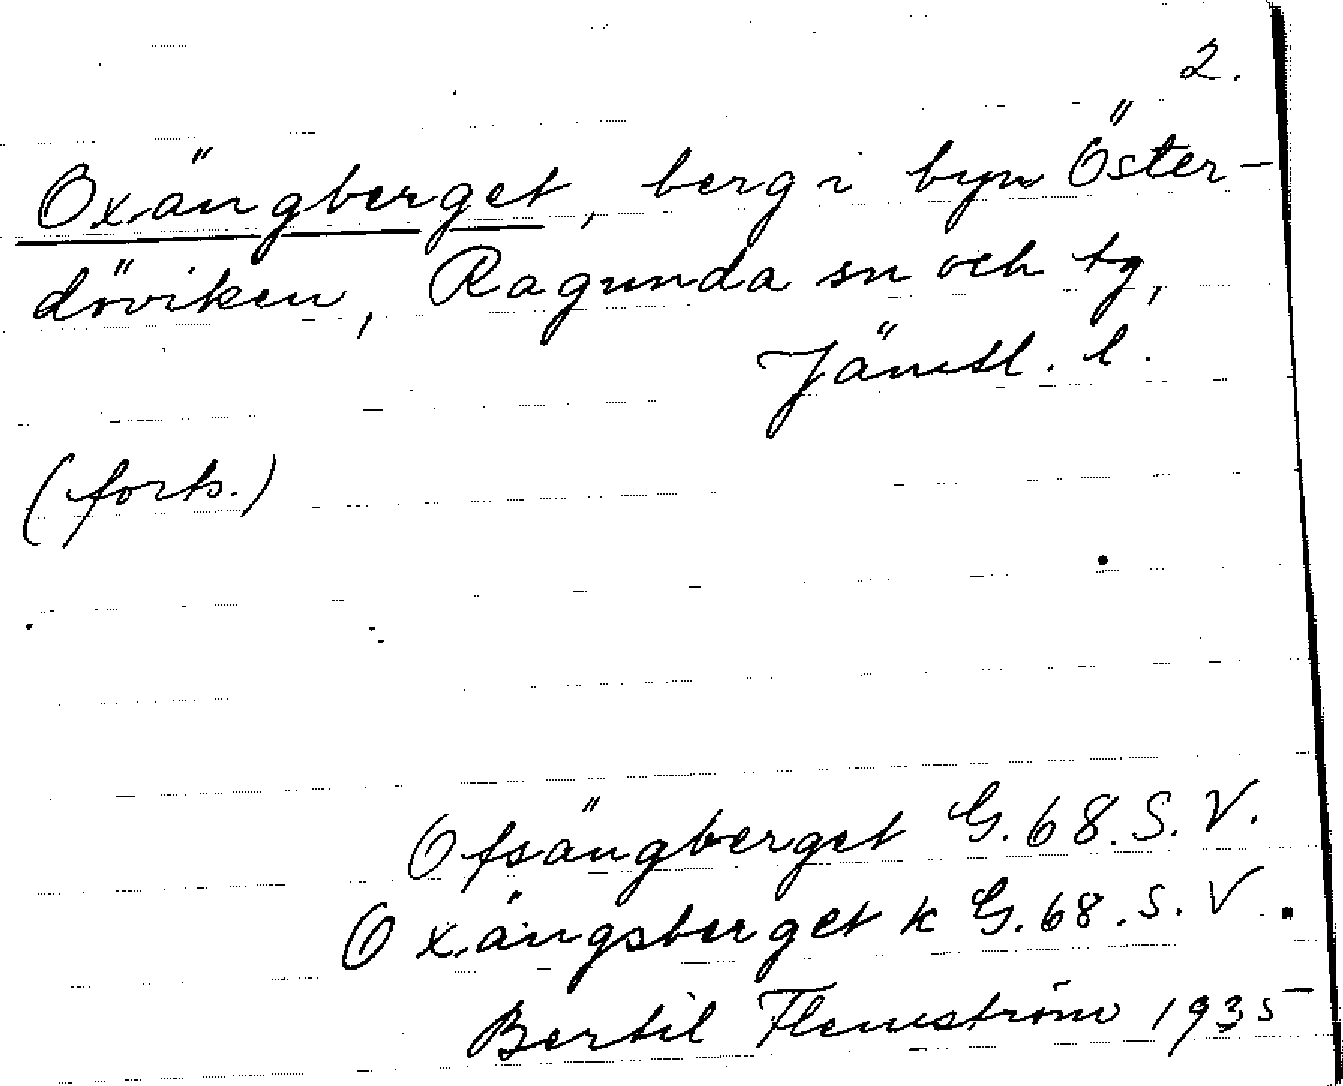 2.
Oxängberget, berg i byn Öster-
döviken, Ragunda sn och tg,
Jämtl. l.
(forts.)
Ofsängberget G. 68. S. V.
Oxängsberget k G. 68. S. V.
Bertil Flemström 1935